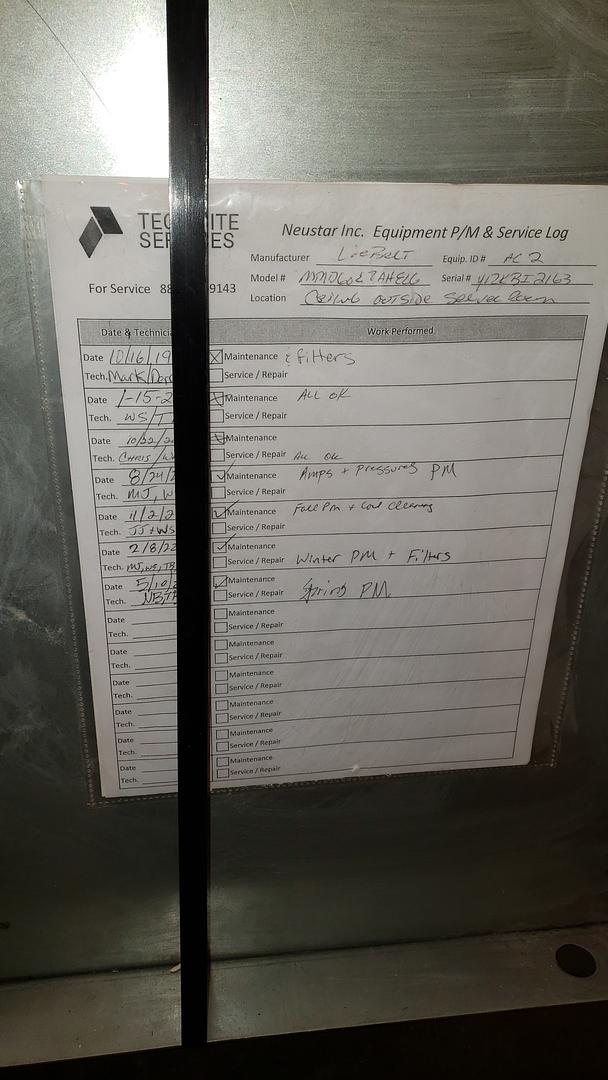 TEC ITE
SER ES
Neustar Inc. Equipment P/M & Service Log
Manufacturer LieBeRT Equip. ID # AC 2
Model # Serial # Y12KBI2163
For Service 88 9143
Location Ceiling OUTSIDE Server Room
Date & Technicia Work Performed
Date 10/16/19 Maintenance & filters
Tech. Mark/ Service / Repair
Date 1-15-2 Maintenance ALL OK
Tech. WS/T Service / Repair
Date 10/22/2 Maintenance
Tech. CHRIS/W Service / Repair ALL OK
Date 8/24/2 Maintenance Amps + pressures PM
Tech. MJ, W Service / Repair
Date 11/2/2 Maintenance Fall Pm + Coil Cleaning
Tech. JJ+WS Service / Repair
Date 2/8/22 Maintenance
Tech. MJ,WS,TB Service / Repair Winter PM + Filters
Date 5/10/2 Maintenance
Tech. NB,T Service / Repair Spring PM
Date Maintenance
Tech. Service / Repair
Date Maintenance
Tech. Service / Repair
Date Maintenance
Tech. Service / Repair
Date Maintenance
Tech. Service / Repair
Date Maintenance
Tech. Service / Repair
Date Maintenance
Tech. Service / Repair